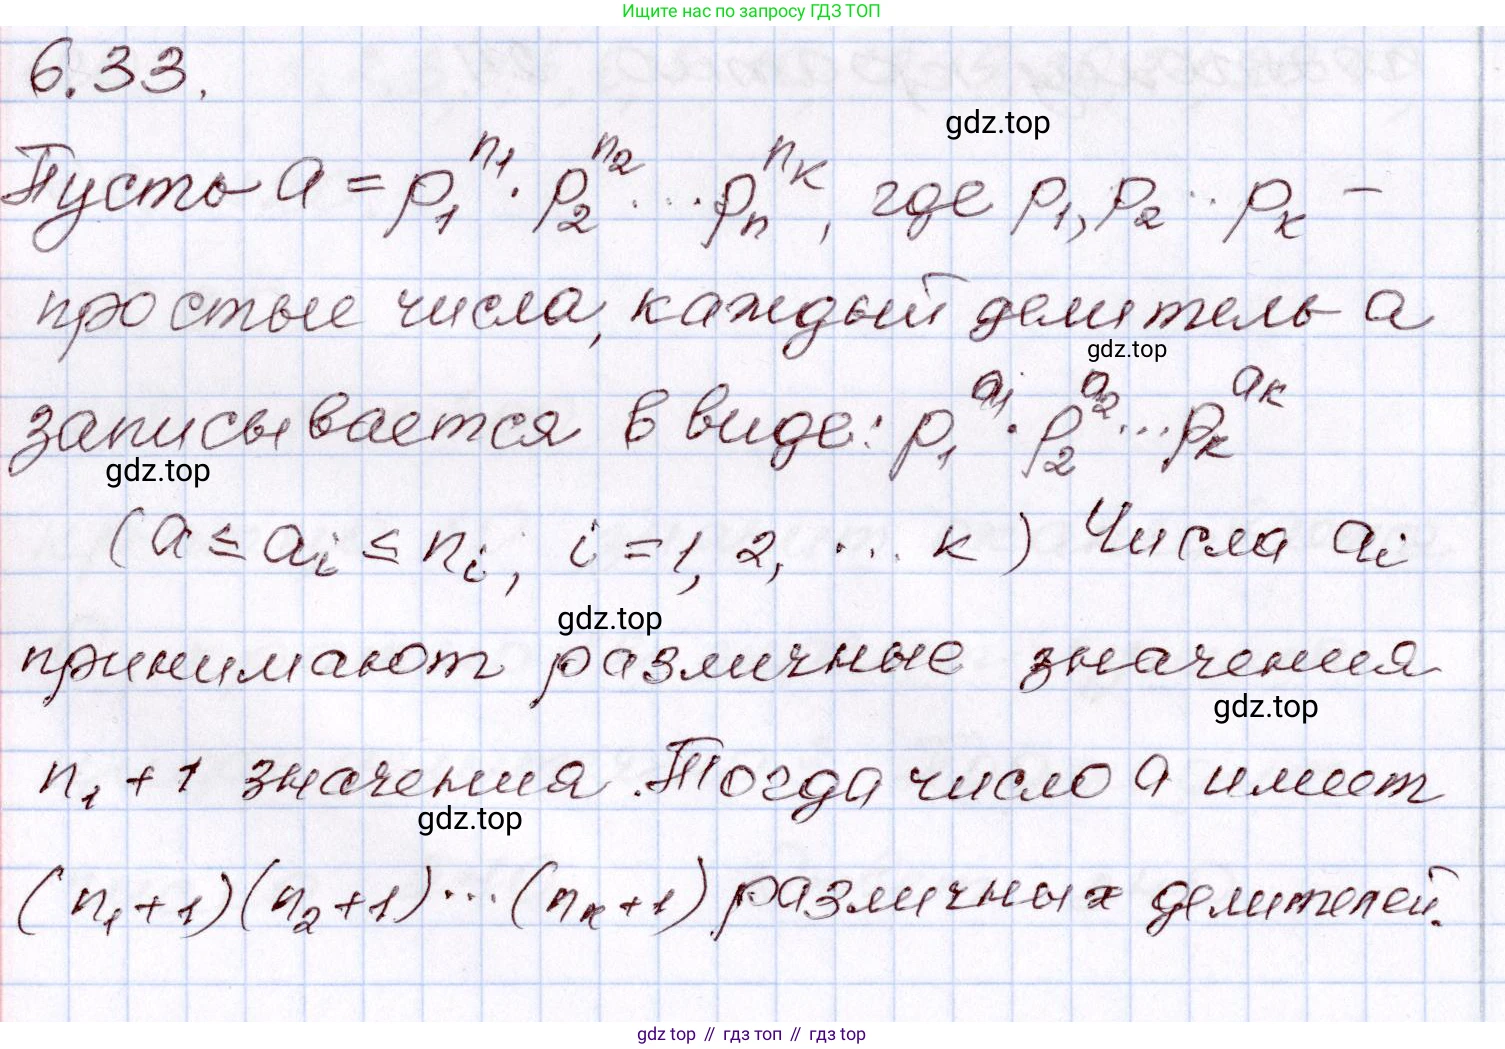 Ищите нас по запросу ГДЗ ТОП
6.33.
gdz.top
Пусть a = p₁^n₁ · p₂^n₂ ... pₙ^nₖ, где p₁, p₂ ... pₖ –
простые числа, каждый делитель a
gdz.top
записывается в виде: p₁^a₁ · p₂^a₂ ... pₖ^aₖ
gdz.top
(a ≤ aᵢ ≤ nᵢ, i = 1, 2, ... k) Числа aᵢ
gdz.top
принимают различные значения
gdz.top
n₁ + 1 значения. Тогда число a имеет
gdz.top
(n₁ + 1)(n₂ + 1) ... (nₖ + 1) различных делителей.
gdz top // гдз топ // гдз top